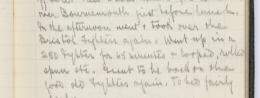 over Bournemouth just before lunch.
In the afternoon went & took over the
Bristol Fighter again. Went up in a
250 Fighter for 45 minutes & looped, rolled
spun etc. Great to be back on the
good old Fighter again. To bed fairly